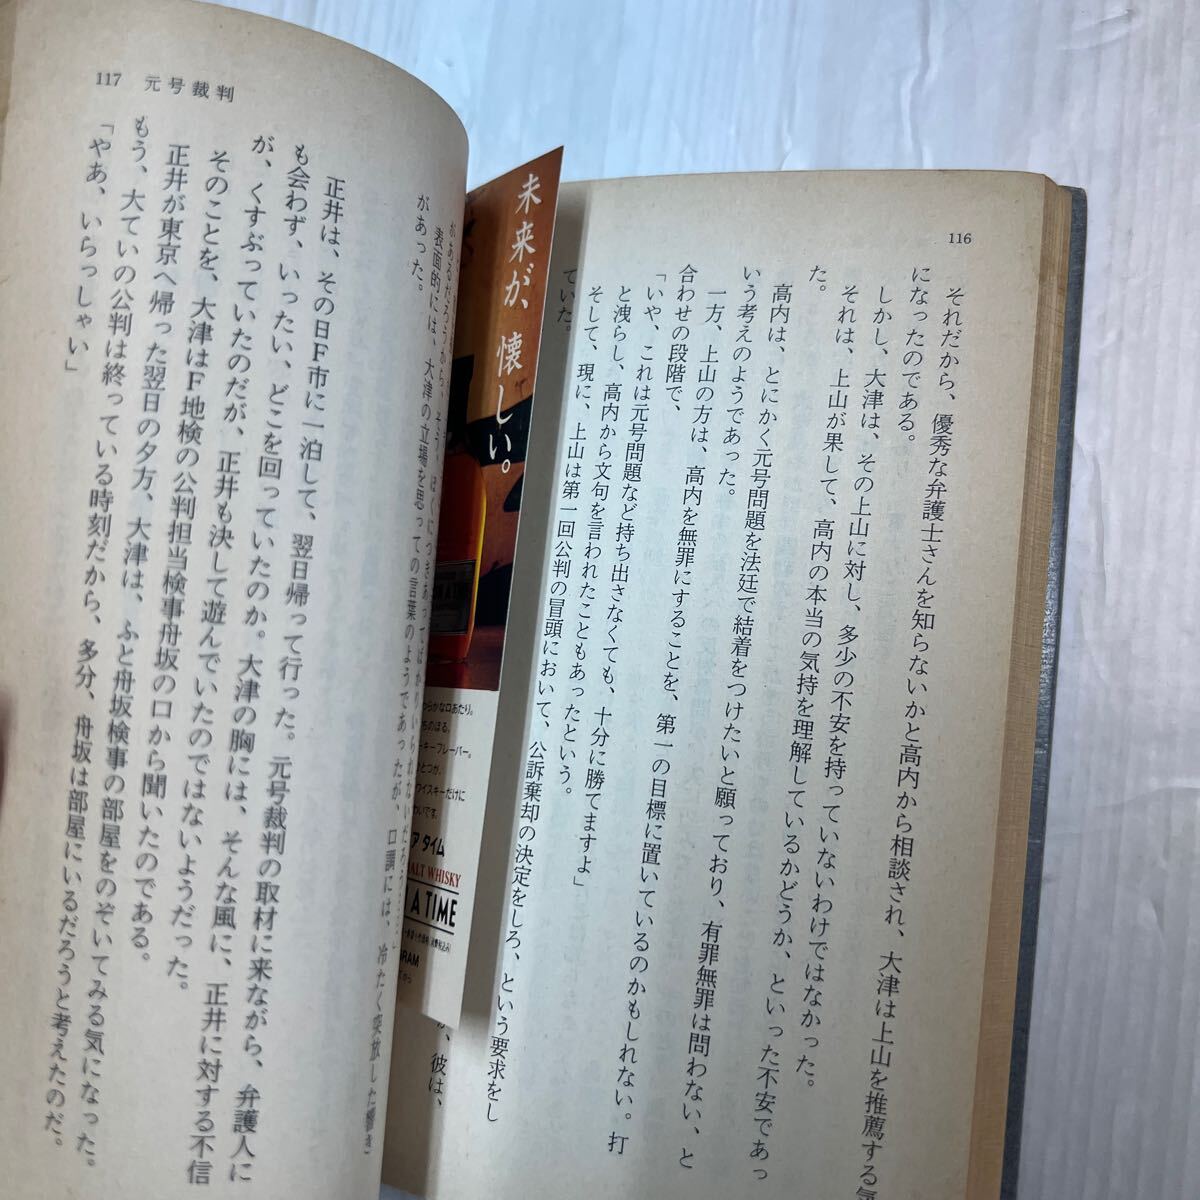 116
それだから、優秀な弁護士さんを知らないかと高内から相談され、大津は上山を推薦する気
になったのである。
しかし、大津は、その上山に対し、多少の不安を持っていないわけではなかった。
それは、上山が果して、高内の本当の気持を理解しているかどうか、といった不安であっ
た。
高内は、とにかく元号問題を法廷で結着をつけたいと願っており、有罪無罪は問わない、と
いう考えのようであった。
一方、上山の方は、高内を無罪にすることを、第一の目標に置いているのかもしれない。打
合わせの段階で、
「いや、これは元号問題など持ち出さなくても、十分に勝てますよ」
と洩らし、高内から文句を言われたこともあったという。
そして、現に、上山は第一回公判の冒頭において、公訴棄却の決定をしろ、という要求をし
ていた。
彼は、
未来が、懐しい。
らかな口あたり。
ちのぼる、
ーキーフレーバー。
ひとつが、
ウイスキーだけに
わいです。
ア タイム
MALT WHISKY
A TIME
117 元号裁判
があるだろうから、そうそう、ぼくにつきあってばかりいられないだろう……」
表面的には、大津の立場を思っての言葉のようであったが、口調には、冷たく突放した響き
があった。
正井は、その日F市に一泊して、翌日帰って行った。元号裁判の取材に来ながら、弁護人に
も会わず、いったい、どこを回っていたのか。大津の胸には、そんな風に、正井に対する不信
が、くすぶっていたのだが、正井も決して遊んでいたのではないようだった。
そのことを、大津はF地検の公判担当検事舟坂の口から聞いたのである。
正井が東京へ帰った翌日の夕方、大津は、ふと舟坂検事の部屋をのぞいてみる気になった。
もう、大ていの公判は終っている時刻だから、多分、舟坂は部屋にいるだろうと考えたのだ。
「やあ、いらっしゃい」